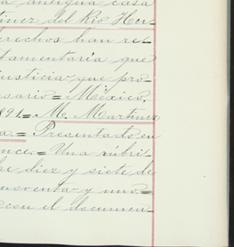 a antigua casa
tinez del Rio Her-
derechos han re-
tamentaria que
justicia que pro-
esario = México,
1891 = M. Martinez
a. = Presentado en
once. = Una rúbri-
de diez y siete de
noventa y uno =
con el documen-